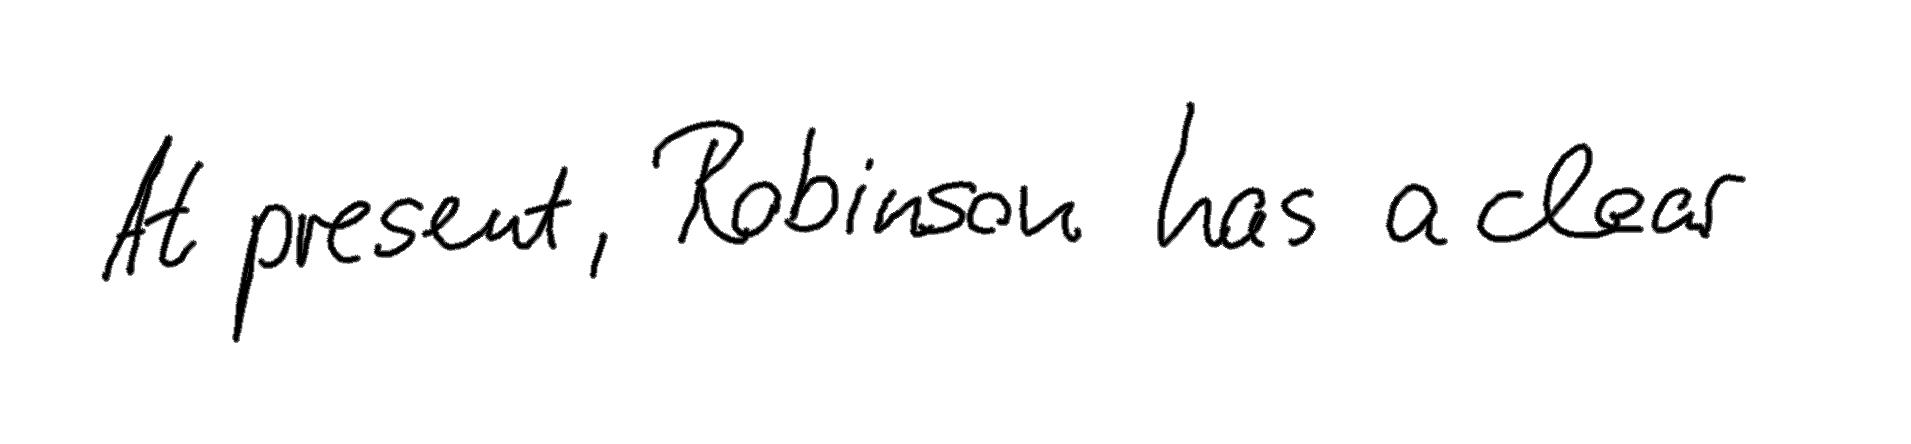 At present, Robinson has a clear